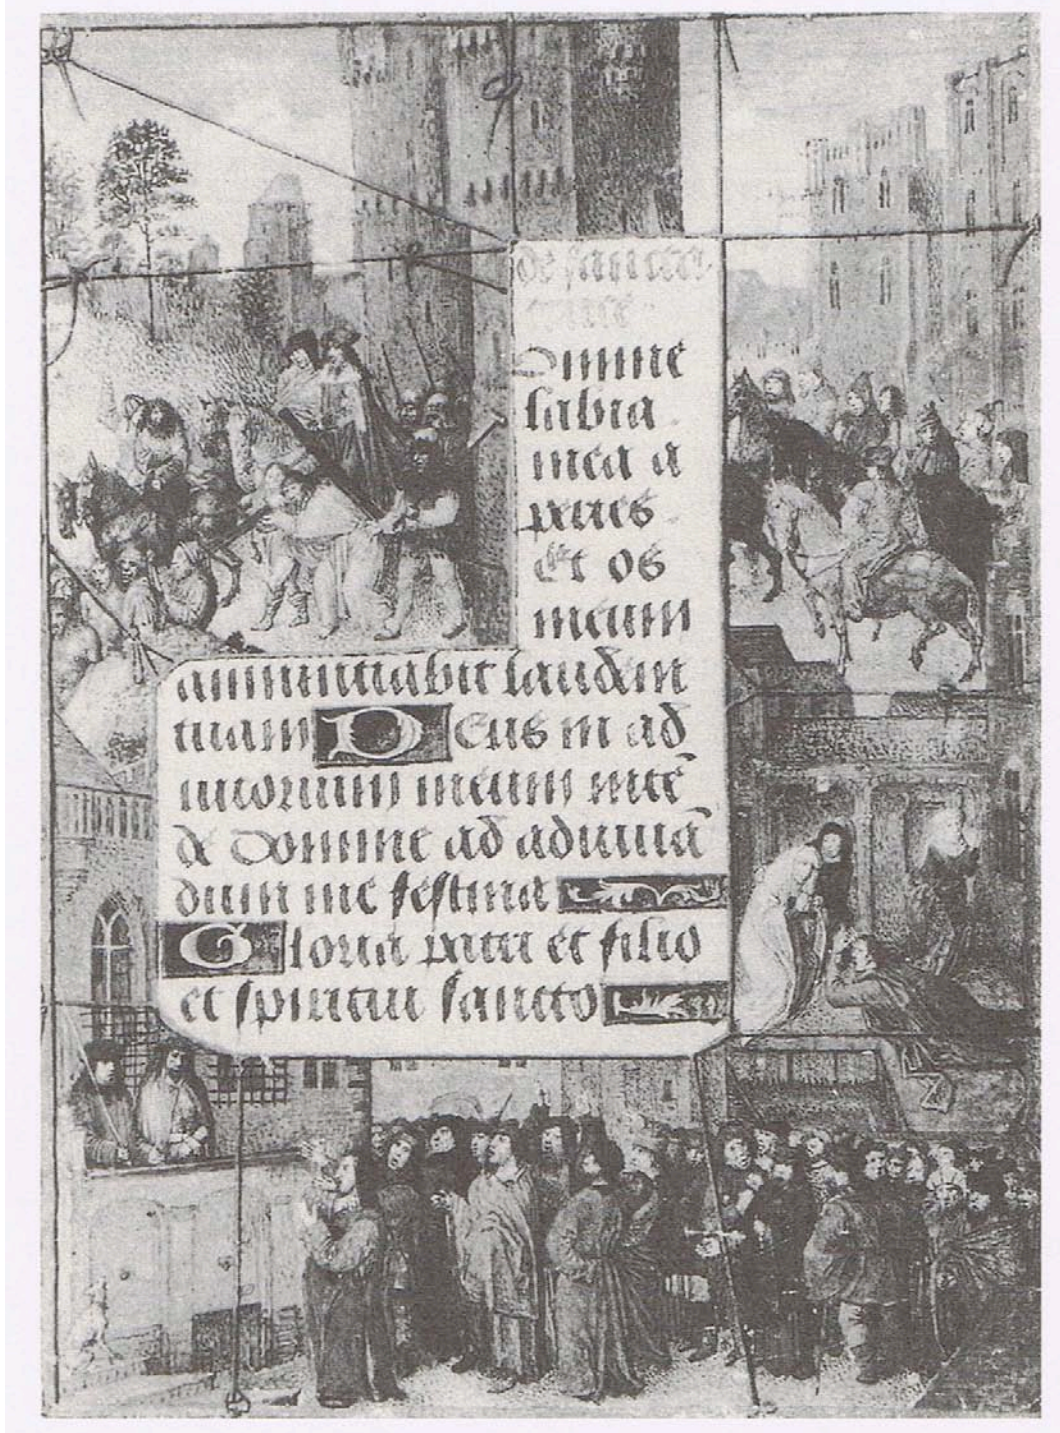 de sancta
cruce
Domine
labia
mea a
peries
Et os
meum
annuntiabit laudem
tuam Deus in ad
iutorium meum intē
de Domine ad adiuuā
dum me festina
Gloria patri et filio
et spiritui sancto